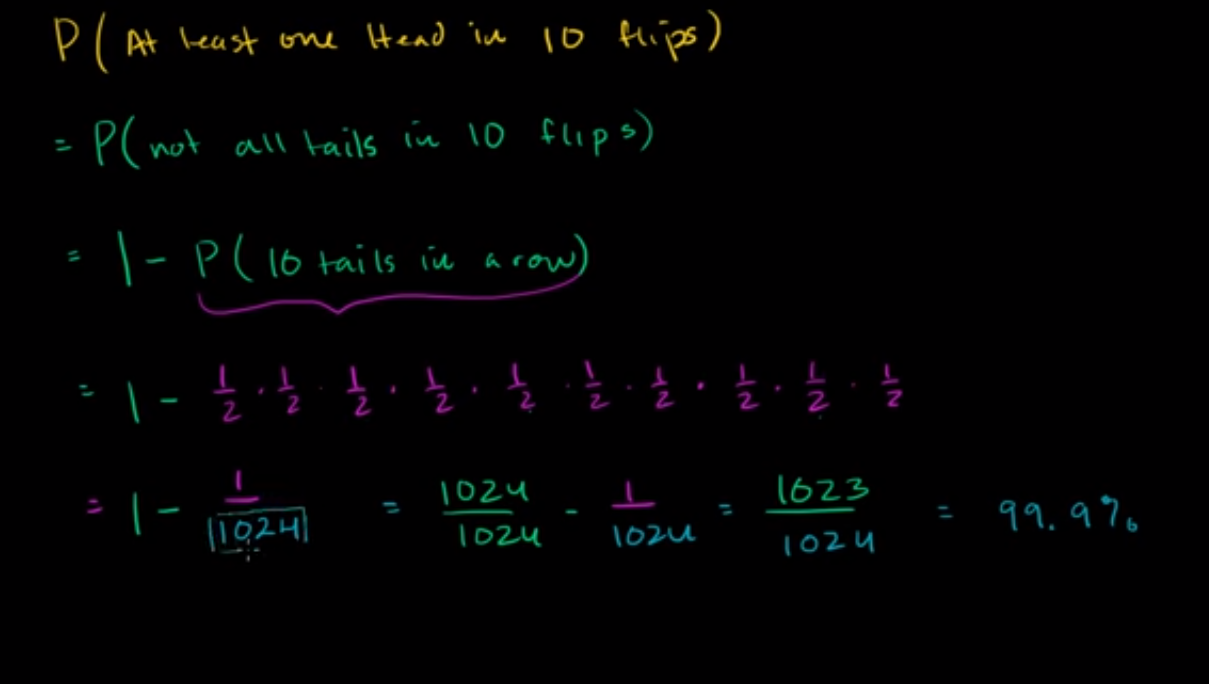 P(At least one Head in 10 flips)
= P(not all tails in 10 flips)
= 1 - P(10 tails in a row)
= 1 - 1/2 · 1/2 · 1/2 · 1/2 · 1/2 · 1/2 · 1/2 · 1/2 · 1/2 · 1/2
= 1 - 1/1024 = 1024/1024 - 1/1024 = 1023/1024 = 99.9%